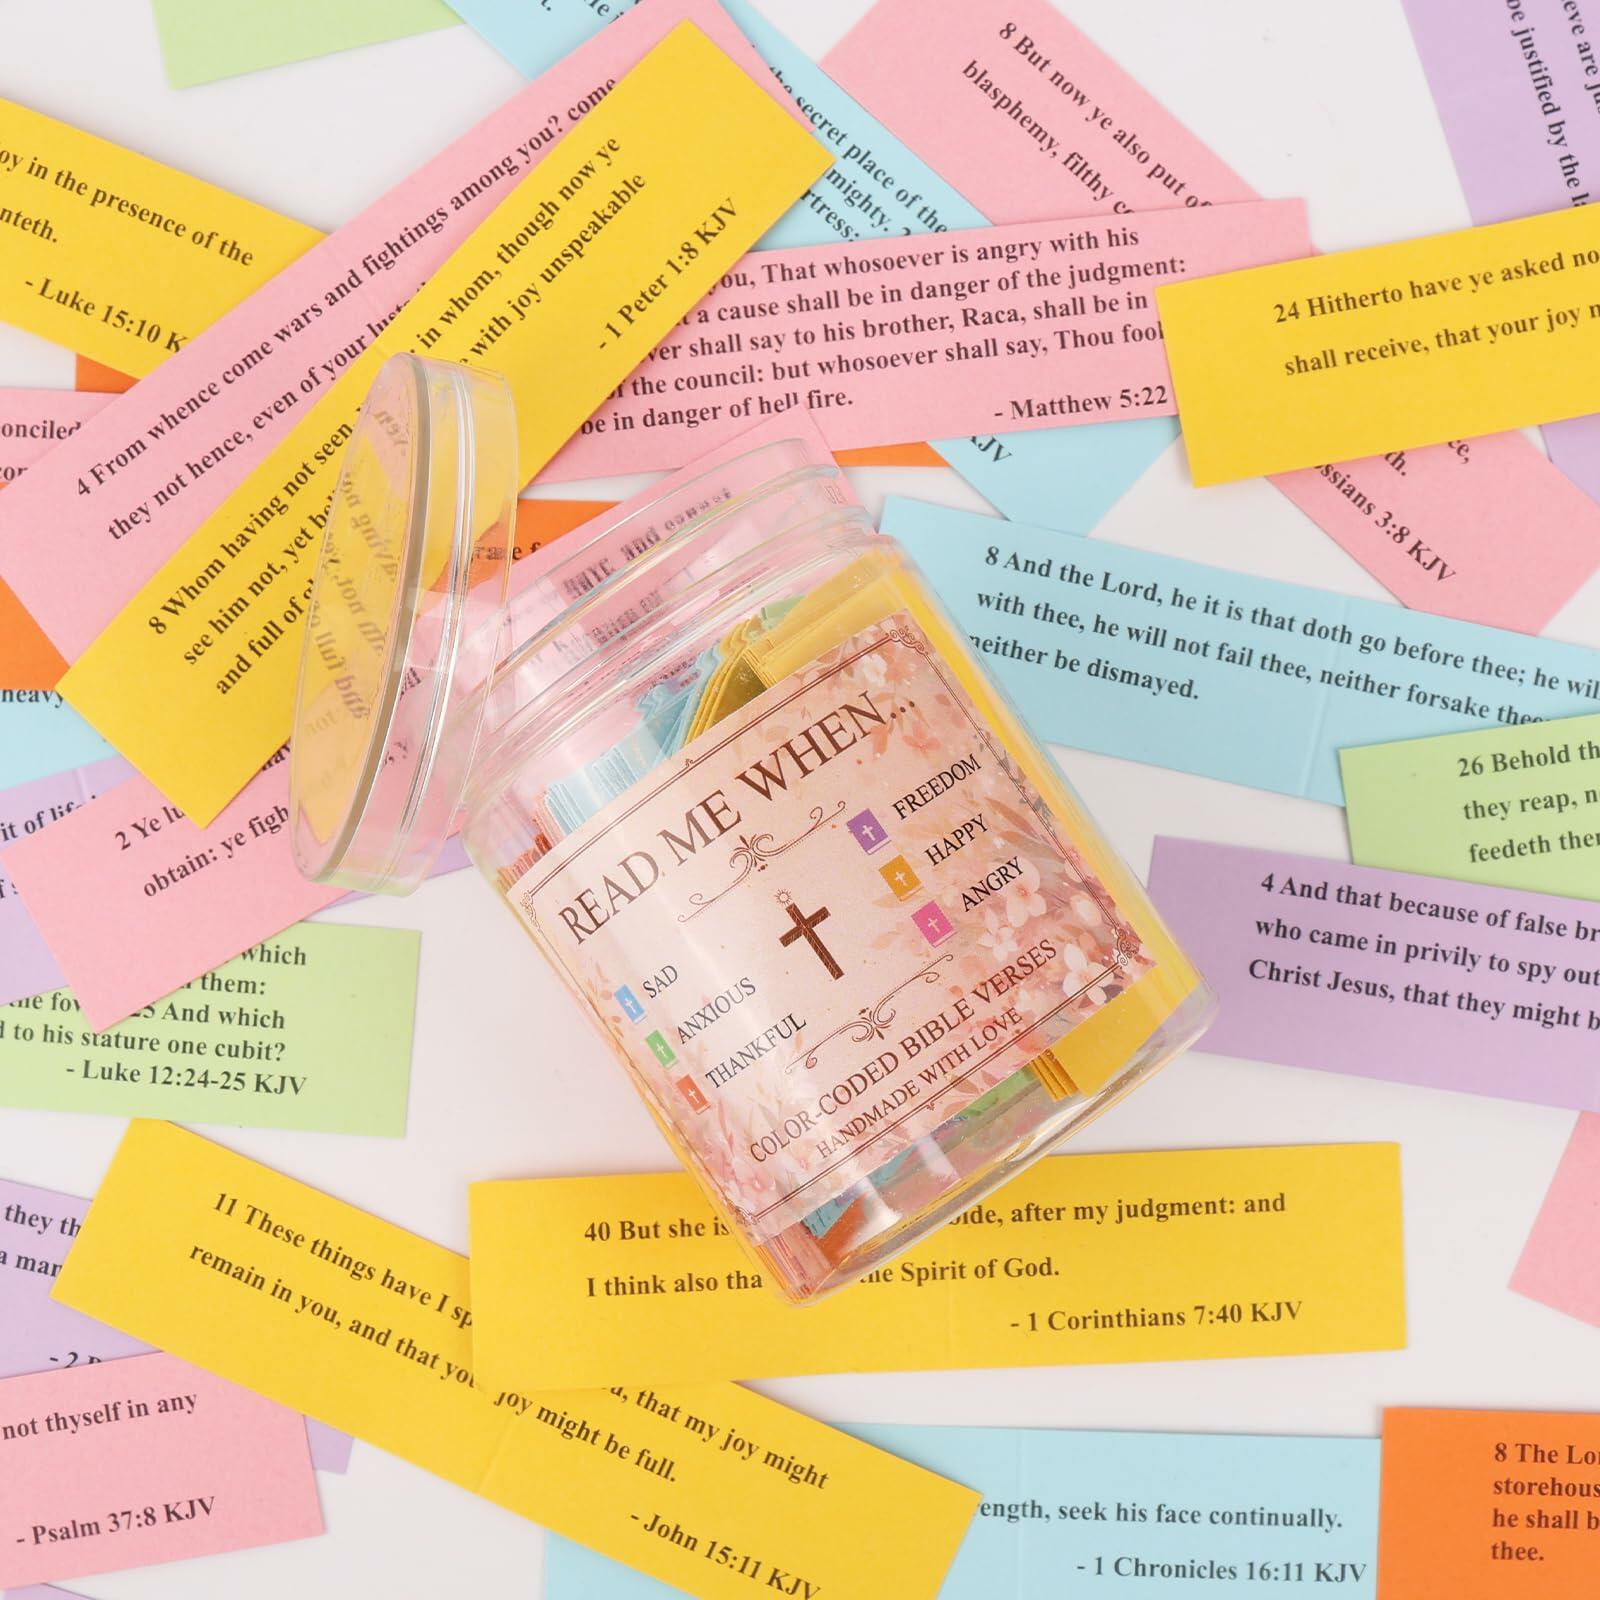 oy in the presence of the
nteth.
- Luke 15:10 K
4 From whence come wars and fightings among you? come
they not hence, even of your lust
8 Whom having not seen
in whom, though now ye
see him not, yet be
with joy unspeakable
and full of
- 1 Peter 1:8 KJV
the secret place of the
mighty.
rtress:
KJV
8 But now ye also put of
blasphemy, filthy co
ssians 3:8 KJV
be justified by the l
you, That whosoever is angry with his
a cause shall be in danger of the judgment:
ver shall say to his brother, Raca, shall be in
of the council: but whosoever shall say, Thou fool
be in danger of hell fire.
- Matthew 5:22
24 Hitherto have ye asked no
shall receive, that your joy m
onciled
8 And the Lord, he it is that doth go before thee; he wil
with thee, he will not fail thee, neither forsake thee
neither be dismayed.
26 Behold th
they reap, n
feedeth ther
4 And that because of false br
who came in privily to spy out
Christ Jesus, that they might b
heavy
it of life
2 Ye lu
obtain: ye figh
which
them:
the fow
25 And which
d to his stature one cubit?
- Luke 12:24-25 KJV
READ ME WHEN...
SAD
ANXIOUS
THANKFUL
FREEDOM
HAPPY
ANGRY
COLOR-CODED BIBLE VERSES
HANDMADE WITH LOVE
they th
a man
40 But she is
bide, after my judgment: and
I think also tha
the Spirit of God.
- 1 Corinthians 7:40 KJV
11 These things have I sp
that my joy might
remain in you, and that you
joy might be full.
- John 15:11 KJV
not thyself in any
- Psalm 37:8 KJV
rength, seek his face continually.
- 1 Chronicles 16:11 KJV
8 The Lor
storehous
he shall b
thee.